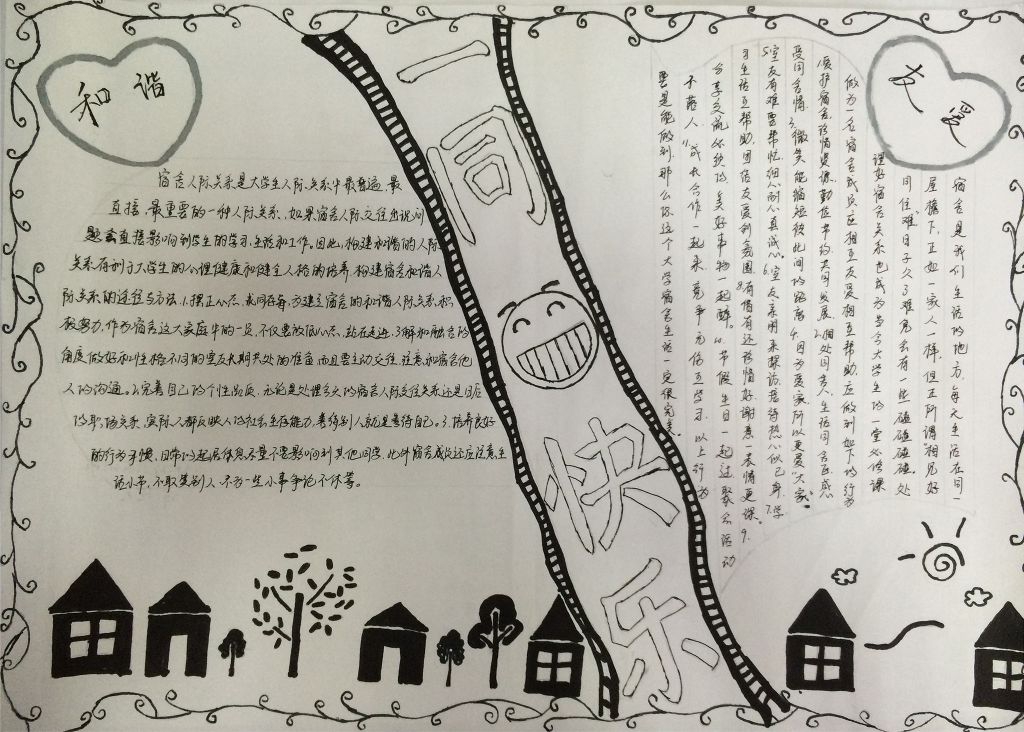 和谐
宿舍人际关系是大学生人际关系中最普遍、最
直接、最重要的一种人际关系，如果宿舍人际交往出现问
题会直接影响到学生的学习、生活和工作。因此，构建和谐的人际
关系有利于大学生的心理健康和健全人格的培养，构建宿舍和谐人
际关系的途径与方法，1.摆正心态，求同存异，为建立宿舍的和谐人际关系积
极努力，作为宿舍这大家庭中的一员，不仅要放低心态，站在走进、了解和融合的
角度做好和性格不同的室友长期共处的准备而且要主动交往，注意和宿舍他
人的沟通。2.完善自己的个性品质，无论是处理各大的宿舍人际交往关系还是日后
的职场关系，实际人都反映人的社会生存能力，善待别人就是善待自己。3.培养良好
的行为习惯，日常的起居休息尽量不要影响到其他同学，此外宿舍成员还应注意生
活小节，不取笑别人，不为一些小事争论不休等。
一同
快乐
友爱
宿舍是我们生活的地方，每天生活在同一
屋檐下，正如一家人一样，但正所谓“相见好
同住难”日子久了难免会有一些磕磕碰碰，处
理好宿舍关系也成为当今大学生的一堂必修课
做为一名宿舍成员应相互友爱相互帮助，应做到如下的行为
爱护宿舍珍惜资源勤俭节约共同发展。2.相处同舍人生活同舍互感
受同舍情。3.微笑能缩短彼此间的距离 4.因为爱家所以更爱“大家”
5.室友有难要帮忙细心耐心真诚心。6.室友亲朋来探访接待热心似己身。7.学
习生活互帮助，团结友爱新氛围。8.有借有还珍惜好谢意一表情更深。9.
分享交流 的美好事物一起醉。10.节假生日一起过聚会活动
不落人。11.成长合作一起来，竞争亢伤互学习。以上行为
要是能做到，那么你这个大学宿舍生活一定很完美。